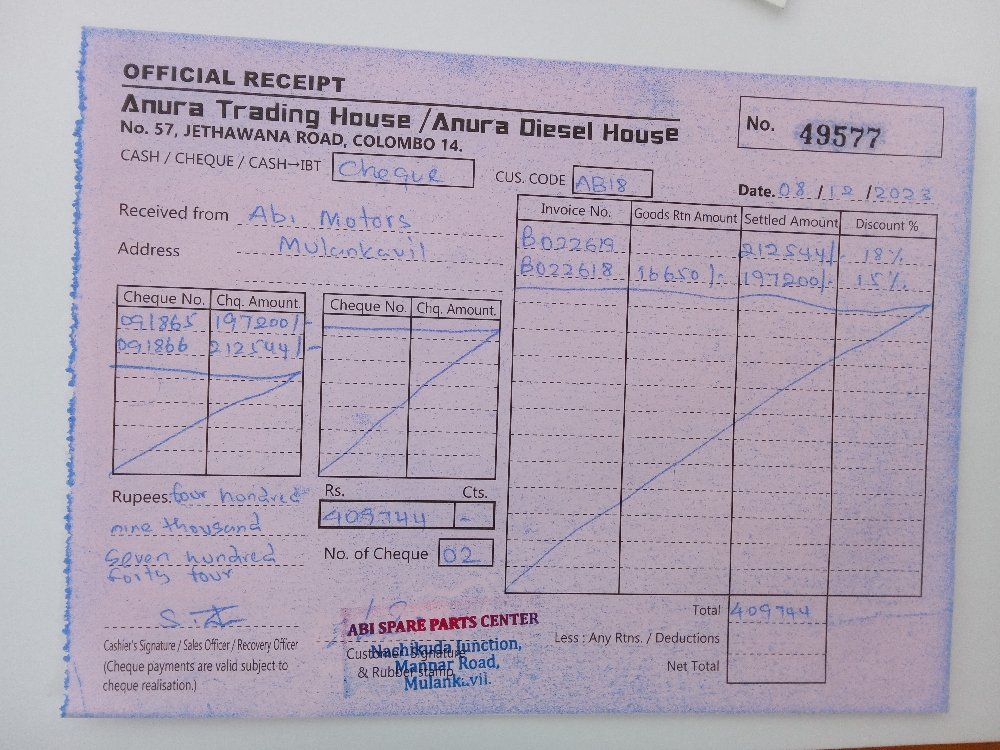 OFFICIAL RECEIPT
Anura Trading House / Anura Diesel House
No. 57, JETHAWANA ROAD, COLOMBO 14.
No. 49577
CASH / CHEQUE / CASH→IBT Cheque
CUS. CODE AB18
Date. 08 / 12 / 2023
Received from Abi Motors
Address Mulankavil
Invoice No. Goods Rtn Amount Settled Amount Discount %
B022619 212544/- 18%
B022618 16650/- 197200/- 15%
Cheque No. Chq. Amount. Cheque No. Chq. Amount.
091865 197200/-
091866 212544/-
Rupees. four hundred
nine thousand
seven hundred
forty four
Rs. Cts.
409744 -
No. of Cheque 02
Total 409744
Less : Any Rtns. / Deductions
Net Total
Cashier's Signature / Sales Officer / Recovery Officer
(Cheque payments are valid subject to
cheque realisation.)
Customer Signature
& Rubber stamp
ABI SPARE PARTS CENTER
Nachikuda Junction,
Mannar Road,
Mulankavil.